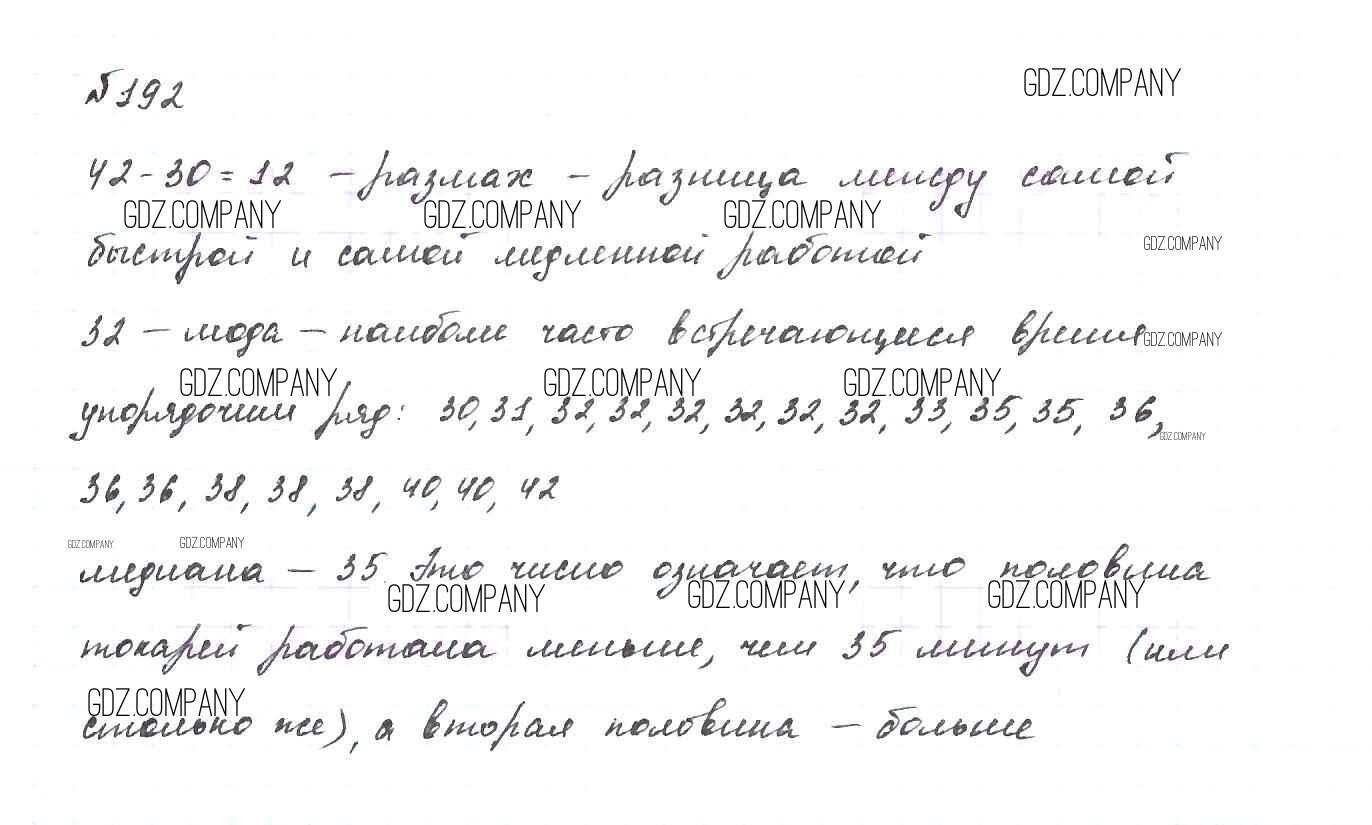 №192
GDZ.COMPANY
42-30=12 – размах – разница между самой
GDZ.COMPANY GDZ.COMPANY GDZ.COMPANY
быстрой и самой медленной работой
GDZ.COMPANY
32 – мода – наиболее часто встречающееся время
GDZ.COMPANY
GDZ.COMPANY GDZ.COMPANY GDZ.COMPANY
упорядочим ряд: 30, 31, 32, 32, 32, 32, 32, 32, 33, 35, 35, 36,
GDZ.COMPANY
36, 36, 38, 38, 38, 40, 40, 42
GDZ.COMPANY GDZ.COMPANY
медиана – 35. Это число означает, что половина
GDZ.COMPANY GDZ.COMPANY GDZ.COMPANY
токарей работала меньше, чем 35 минут (или
GDZ.COMPANY
столько же), а вторая половина – больше